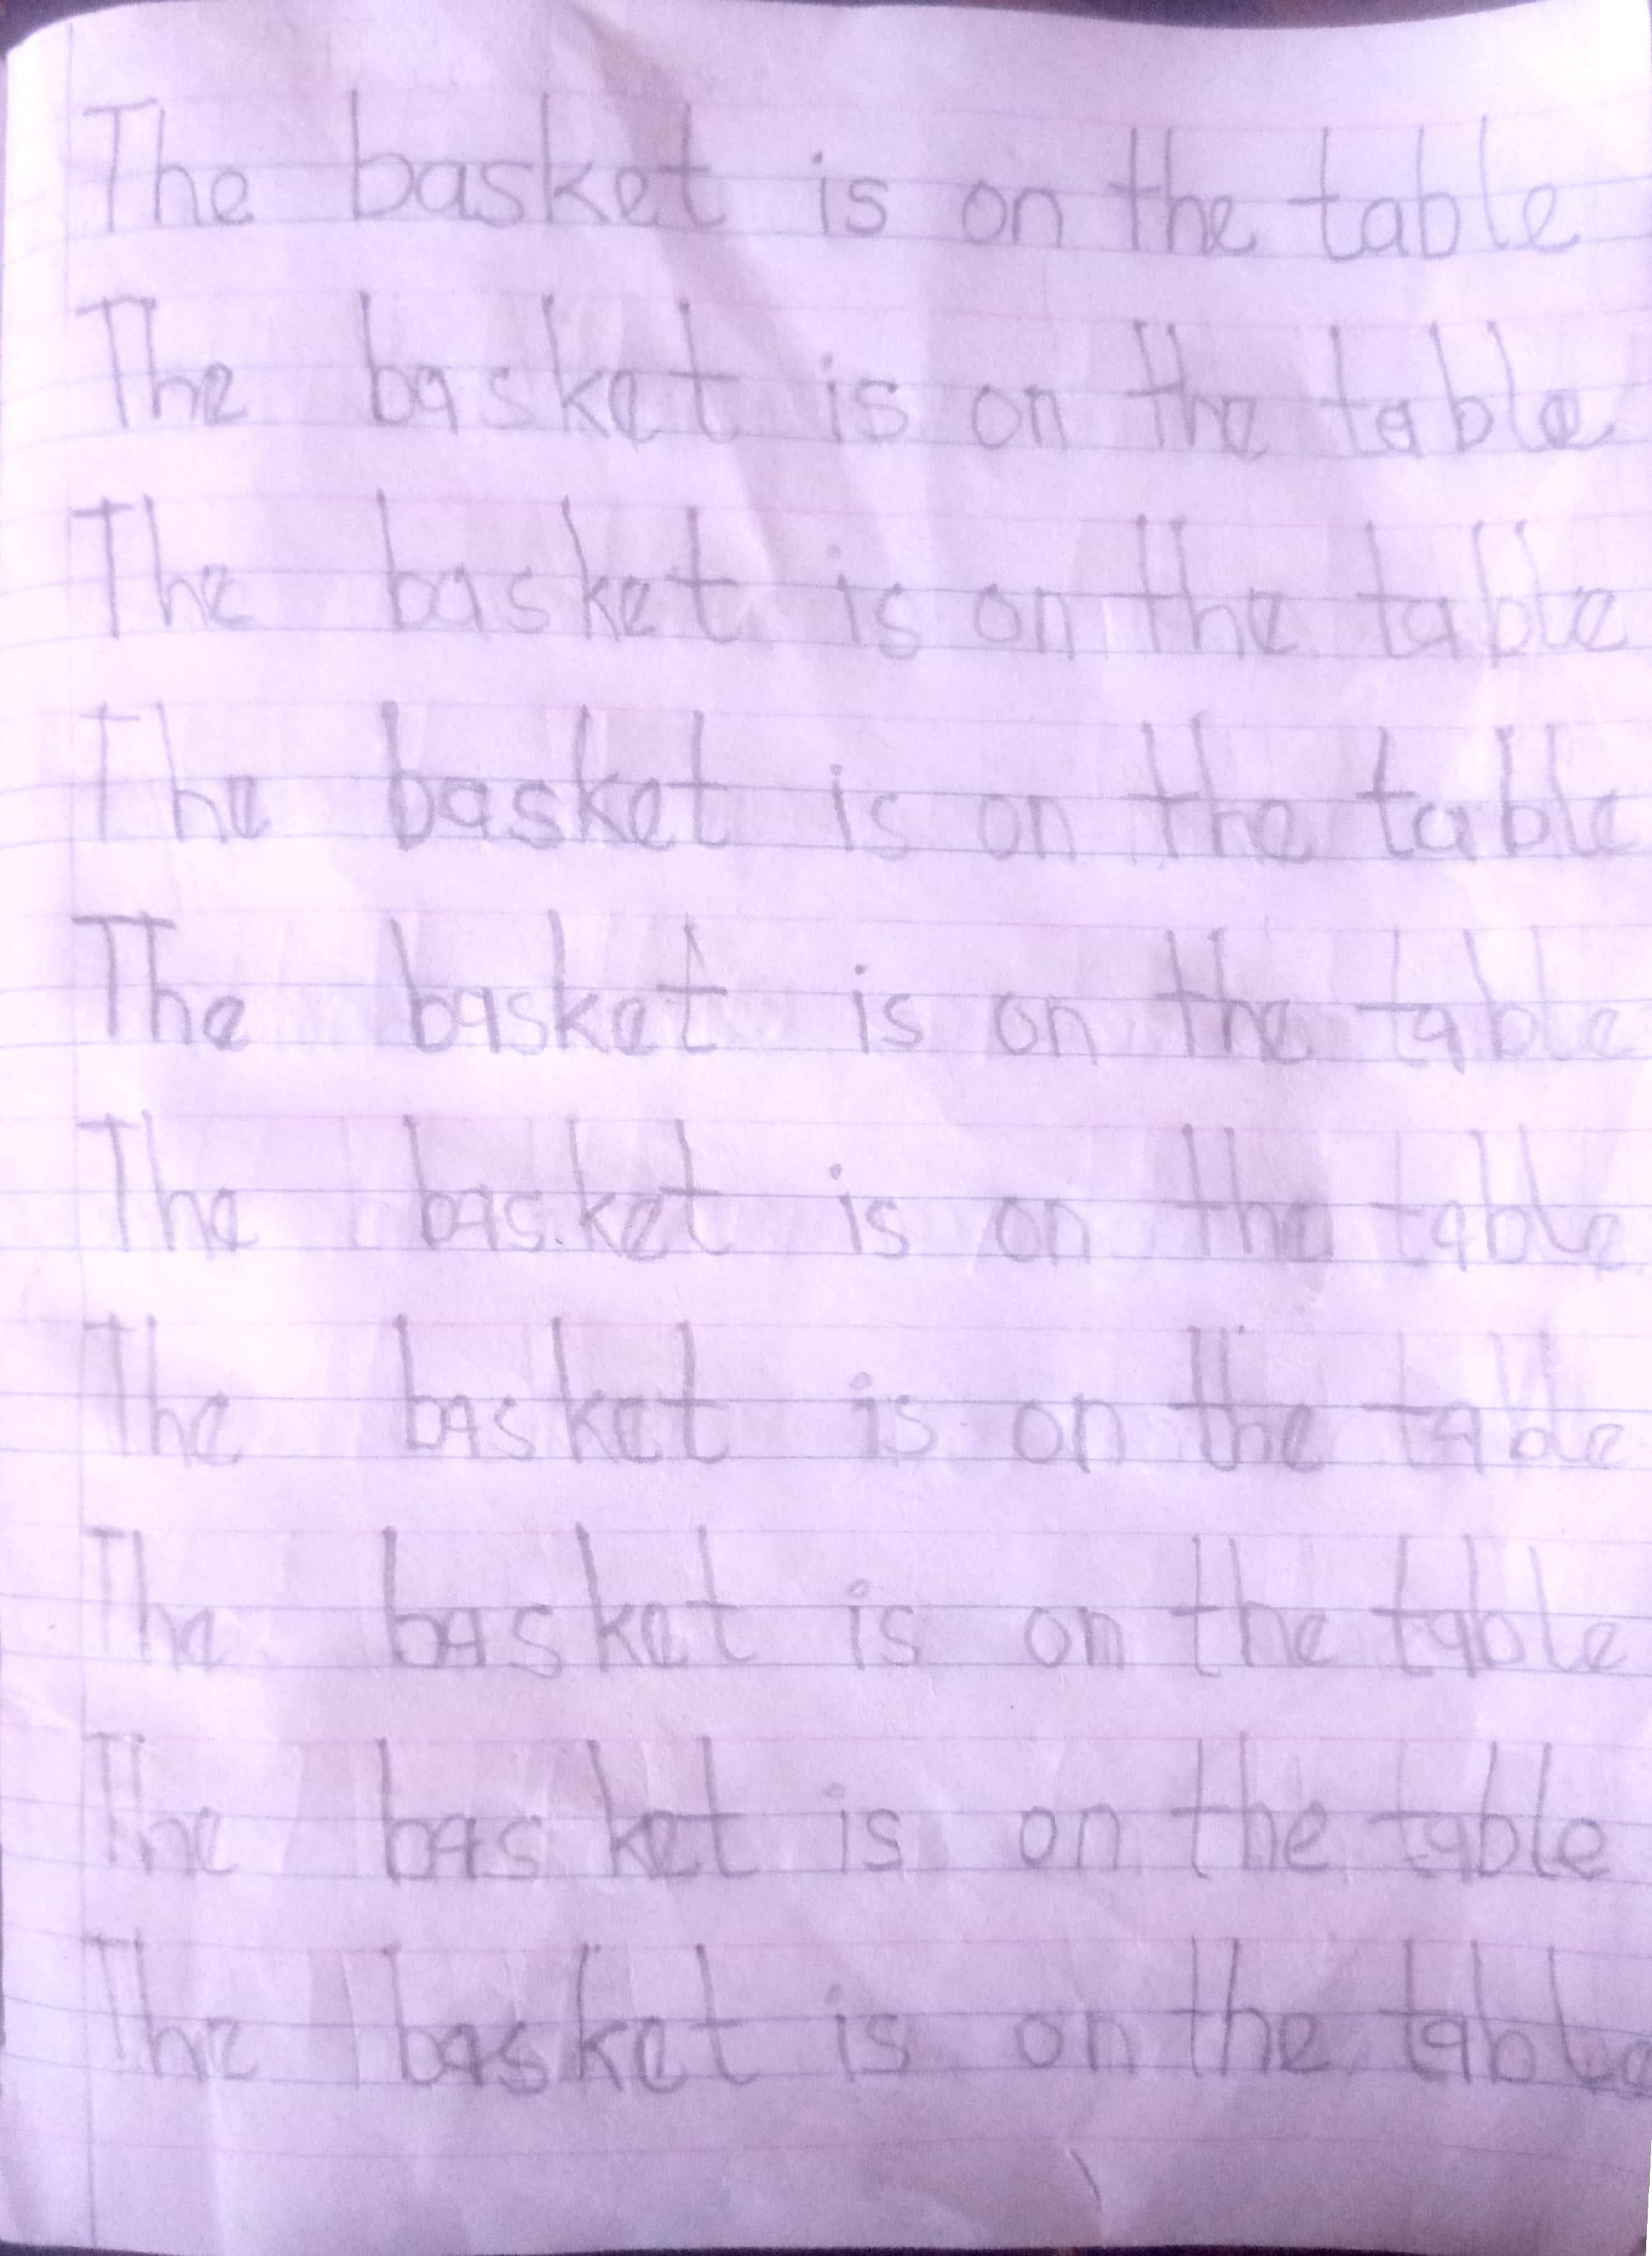 The basket is on the table
The basket is on the table
The basket is on the table
The basket is on the table
The basket is on the table
The basket is on the table
The basket is on the table
The basket is on the table
The basket is on the table
The basket is on the table